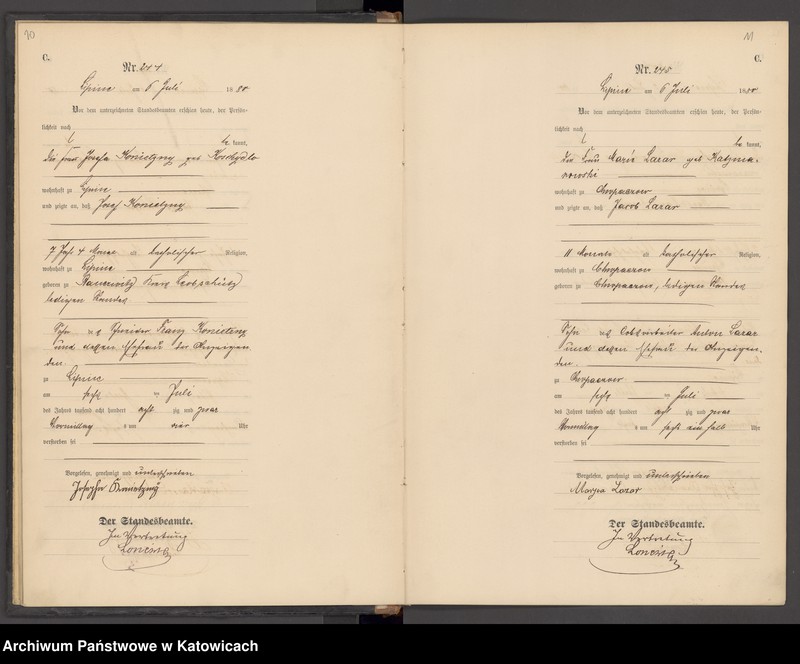 10
C.
Nr. 244
Lipine am 6 Juli 1880
Vor dem unterzeichneten Standesbeamten erschien heute, der Persön-
lichkeit nach
be kannt,
die Frau Josefa Konietzny geb
wohnhaft zu Lipine
und zeigte an, daß Josef Konietzny
7 Jahr 4 Monat alt katholischer Religion,
wohnhaft zu Lipine
geboren zu Kreis Leobschütz
ledigen Standes
Sohn des Franz Konietzny
und dessen Ehefrau der Anzeigen
den
zu Lipine
am sechs ten Juli
des Jahres tausend acht hundert acht zig und zwar
Vormittag s um vier Uhr
verstorben sei
Vorgelesen, genehmigt und unterschrieben
Der Standesbeamte.
In Vertretung
11
C.
Nr. 245
Lipine am 6 Juli 1880
Vor dem unterzeichneten Standesbeamten erschien heute, der Persön-
lichkeit nach
be kannt,
die Frau Marie Lazar geb
wohnhaft zu Chropaczow
und zeigte an, daß Jacob Lazar
11 Monate alt katholischer Religion,
wohnhaft zu Chropaczow
geboren zu Chropaczow, ledigen Standes
Sohn des Anton Lazar
und dessen Ehefrau der Anzeigen-
den.
zu Chropaczow
am sechs ten Juli
des Jahres tausend acht hundert acht zig und zwar
Vormittag s um sechs ein halb Uhr
verstorben sei
Vorgelesen, genehmigt und unterschrieben
Der Standesbeamte.
In Vertretung
Archiwum Państwowe w Katowicach